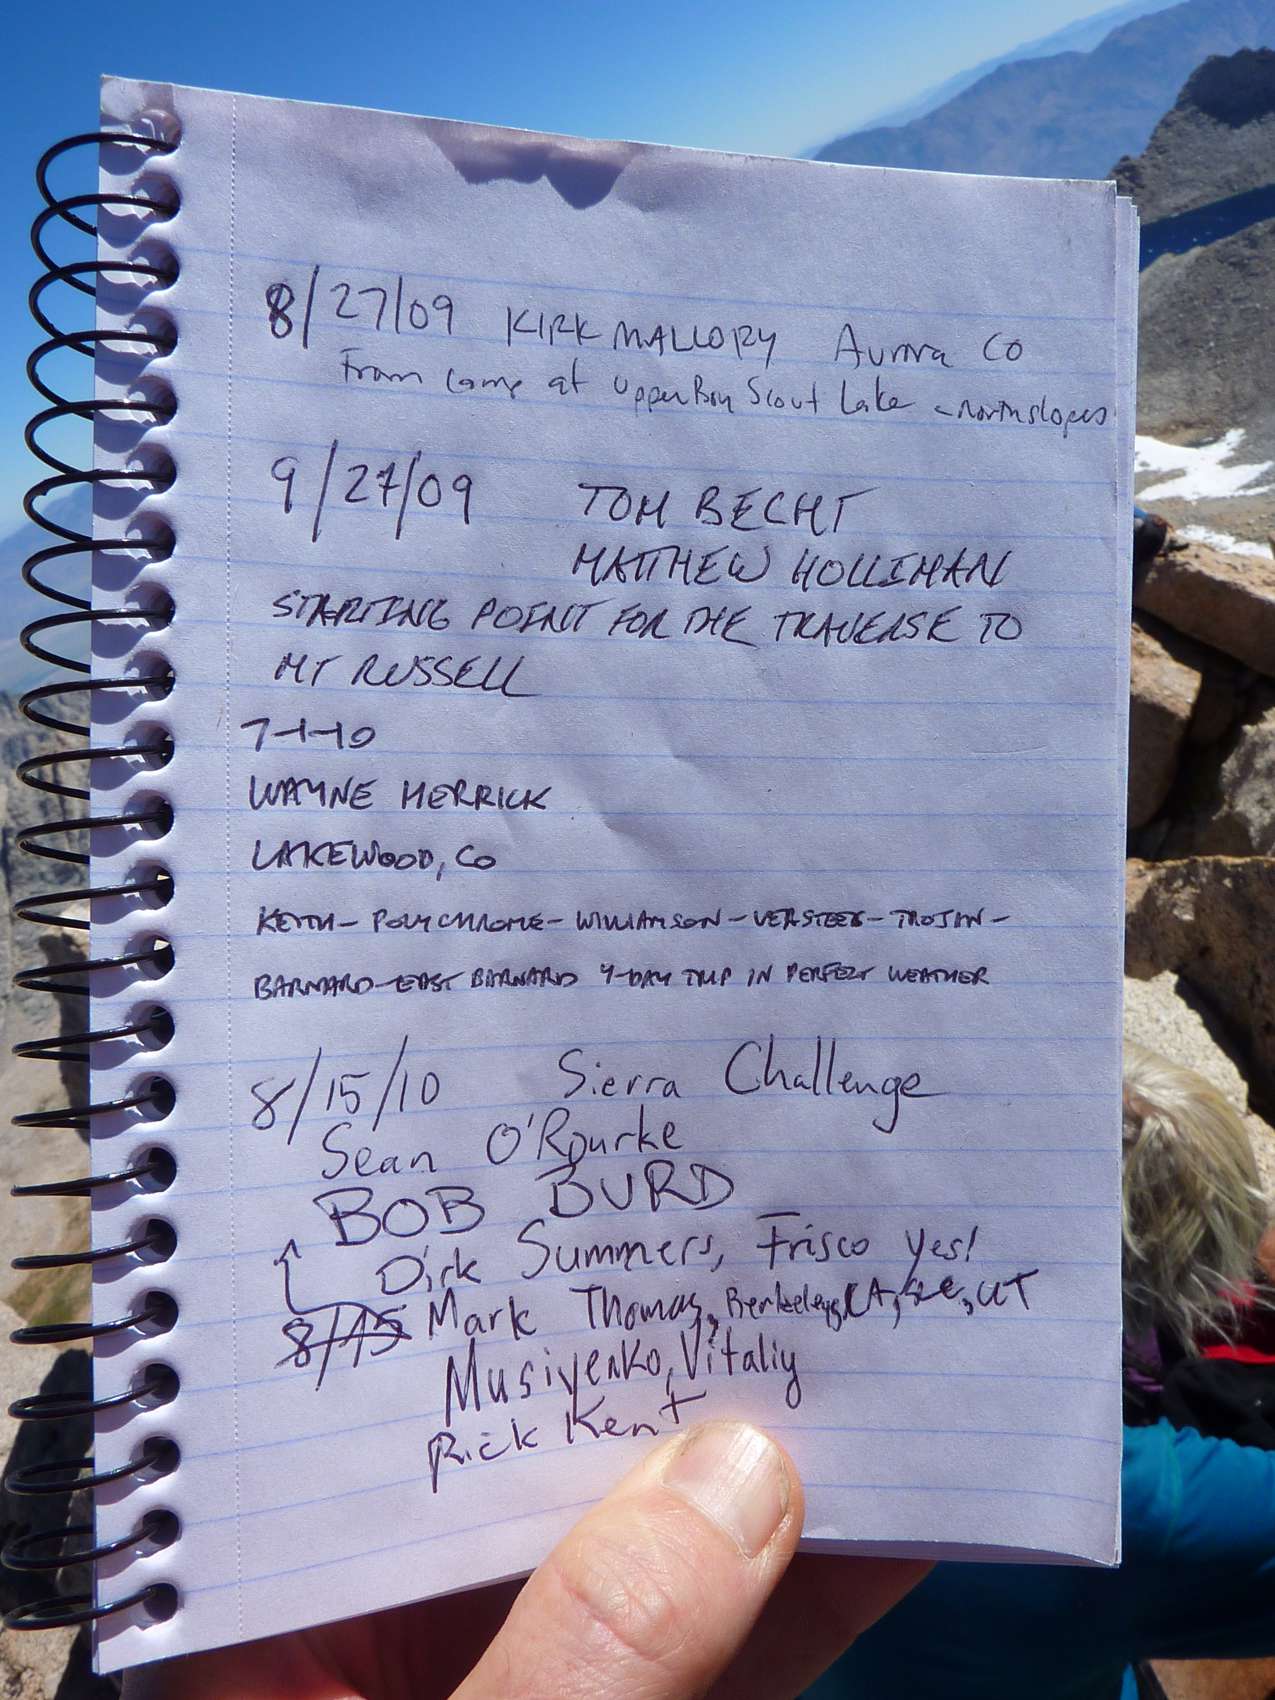 8/27/09 KIRK MALLORY Aurora CO
From camp at Upper Boy Scout Lake - north slopes
9/27/09 TOM BECHT
MATTHEW HOLLIMAN
STARTING POINT FOR THE TRAVERSE TO
MT RUSSELL
7-1-10
WAYNE HERRICK
LAKEWOOD, CO
KEITH - POLYCHROME - WILLIAMSON - VERSTEEG - TROJAN -
BARNARD - EAST BARNARD 4-DAY TRIP IN PERFECT WEATHER
8/15/10 Sierra Challenge
Sean O'Rourke
BOB BURD
Dirk Summers, Frisco Yes!
8/15 Mark Thomas, Berkeley, CA, SLC, UT
Musiyenko, Vitaliy
Rick Kent